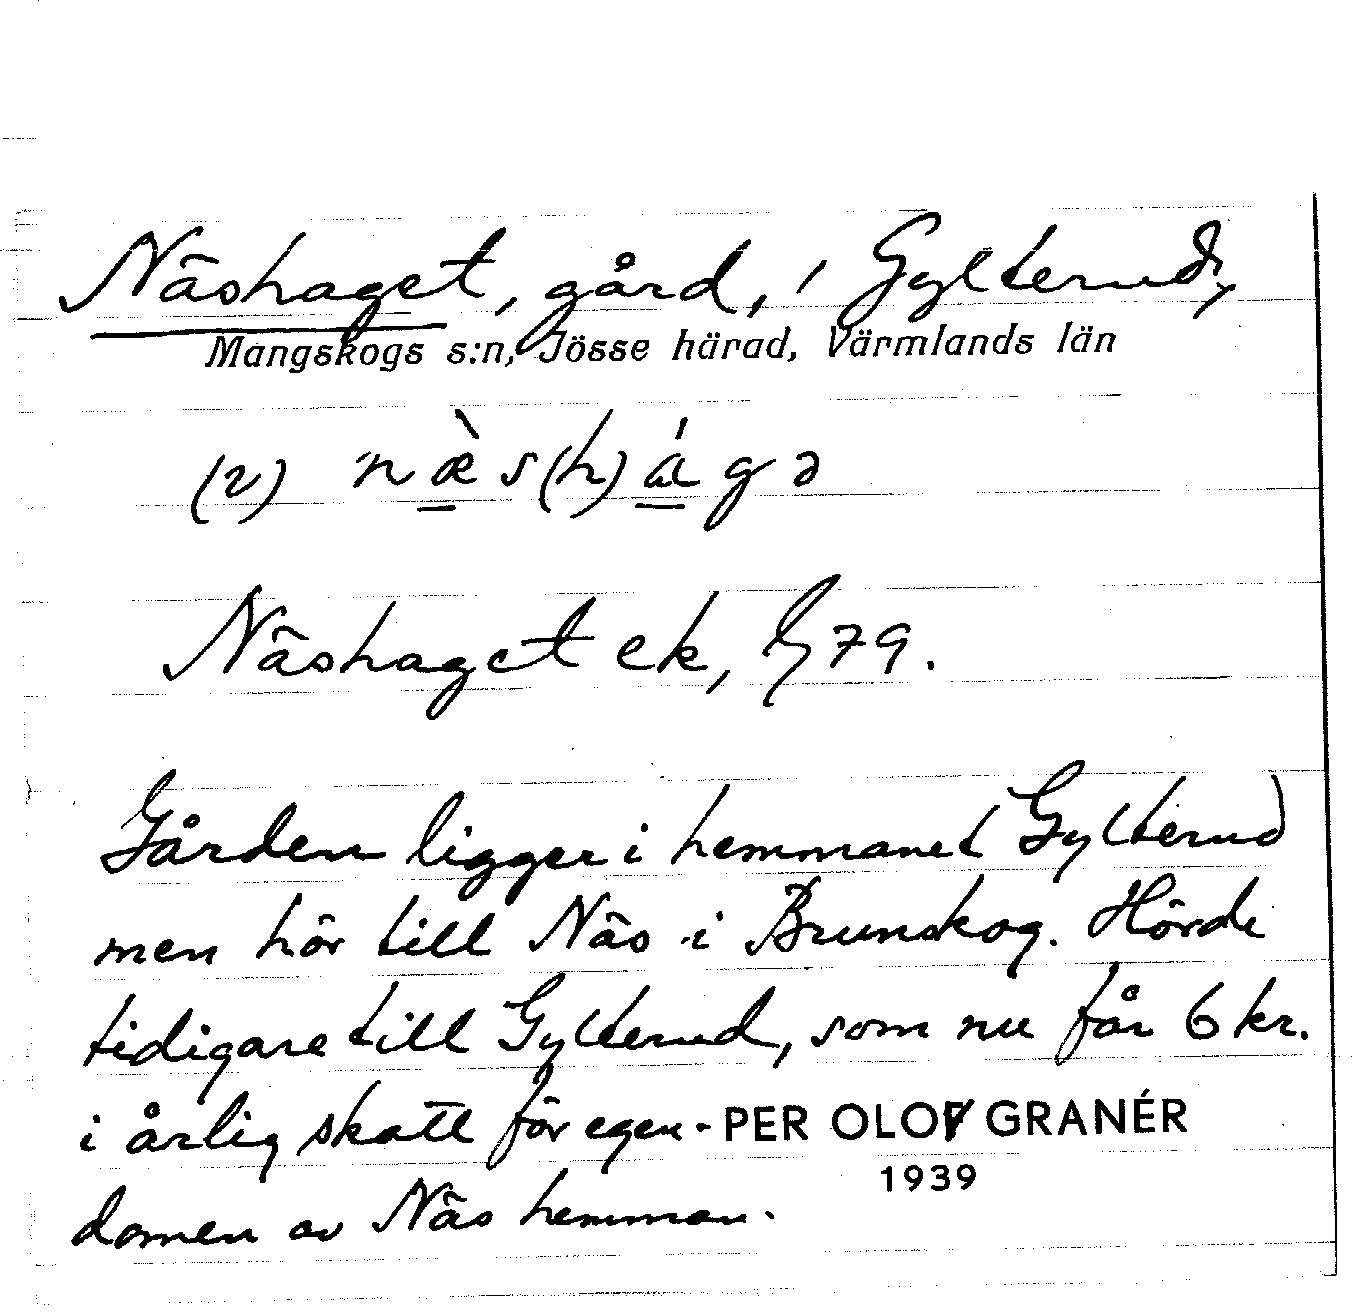 Näshaget, gård, i Gylterud,
Mangskogs s:n, Jösse härad, Värmlands län
(2) næ̀s(h)ágə
Näshaget ek, 79.
Gården ligger i hemmanet Gylterud
men hör till Näs i Brunskog. Hörde
tidigare till Gylterud, som nu får 6 kr.
i årlig skatt för egen-
PER OLOF GRANÉR
1939
domen av Näs hemman.